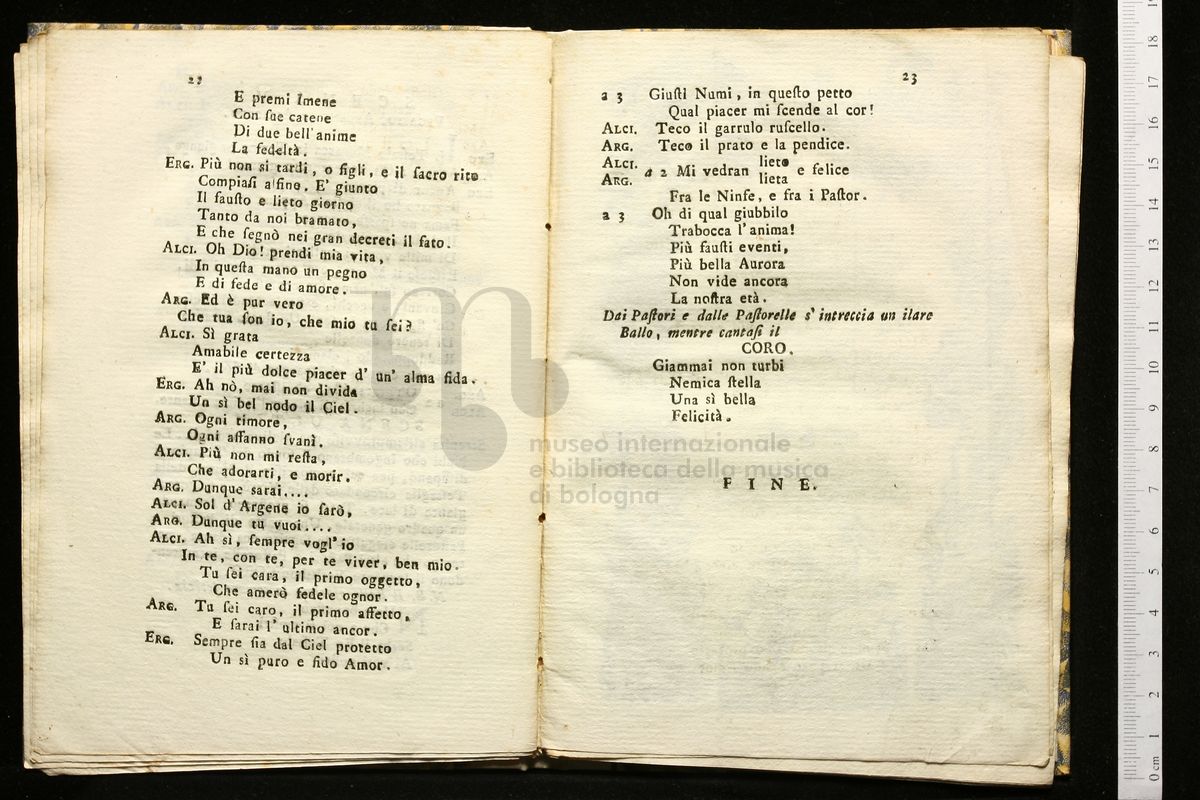 22
E premi Imene
Con ſue catene
Di due bell'anime
La fedeltà.
ERG. Più non si tardi, o figli, e il ſacro rito
Compiaſi alfine. E' giunto
Il fauſto e lieto giorno
Tanto da noi bramato,
E che ſegnò nei gran decreti il fato.
ALCI. Oh Dio! prendi mia vita,
In queſta mano un pegno
E di fede e di amore.
ARG. Ed è pur vero
Che tua ſon io, che mio tu ſei?
ALCI. Sì grata
Amabile certezza
E' il più dolce piacer d' un' alma fida.
ERG. Ah nò, mai non divida
Un sì bel nodo il Ciel.
ARG. Ogni timore,
Ogni affanno ſvanì.
ALCI. Più non mi reſta,
Che adorarti, e morir.
ARG. Dunque sarai....
ALCI. Sol d' Argene io ſarò,
ARG. Dunque tu vuoi....
ALCI. Ah sì, ſempre vogl' io
In te, con te, per te viver, ben mio.
Tu ſei cara, il primo oggetto,
Che amerò fedele ognor.
ARG. Tu ſei caro, il primo affetto,
E ſarai l' ultimo ancor.
ERG. Sempre ſia dal Ciel protetto
Un sì puro e fido Amor.
23
a 3 Giuſti Numi, in queſto petto
Qual piacer mi ſcende al cor!
ALCI. Teco il garrulo ruſcello.
ARG. Teco il prato e la pendice.
ALCI. lieto
a 2 Mi vedran e felice
ARG. lieta
Fra le Ninfe, e fra i Paſtor.
a 3 Oh di qual giubbilo
Trabocca l'anima!
Più fauſti eventi,
Più bella Aurora
Non vide ancora
La noſtra età.
Dai Paſtori e dalle Paſtorelle s' intreccia un ilare
Ballo, mentre cantaſi il
CORO.
Giammai non turbi
Nemica ſtella
Una sì bella
Felicità.
FINE.
museo internazionale
e biblioteca della musica
di bologna
0 cm 1 2 3 4 5 6 7 8 9 10 11 12 13 14 15 16 17 18